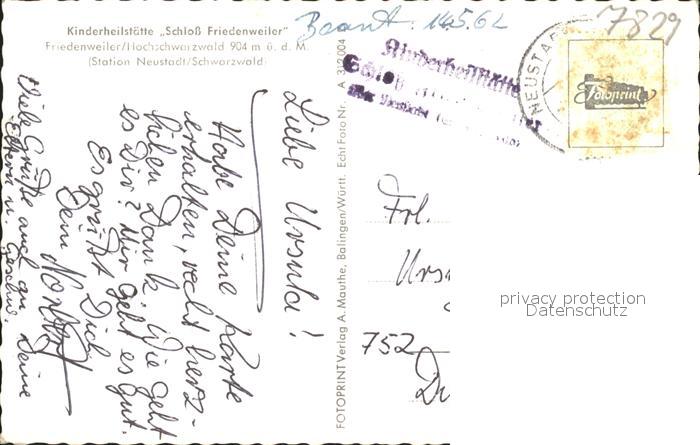 Kinderheilstätte „Schloß Friedenweiler"
Friedenweiler/Hochschwarzwald 904 m ü. d. M.
(Station Neustadt/Schwarzwald)
Beant. 14.5.62
7829
Kinderheilstätte
Schloß
NEUSTADT
Fotoprint
Liebe Ursula!
Habe Deine Karte
erhalten, recht herz-
lichen Dank. Wie geht
es Dir? Mir geht es gut.
Es grüßt Dich
Dein Norbert
Viele Grüße auch an Deine
Eltern u. Geschw.
FOTOPRINT Verlag A. Mauthe, Balingen/Württ. Echt Foto Nr. A 312 004
Frl.
Urs
752
privacy protection
Datenschutz